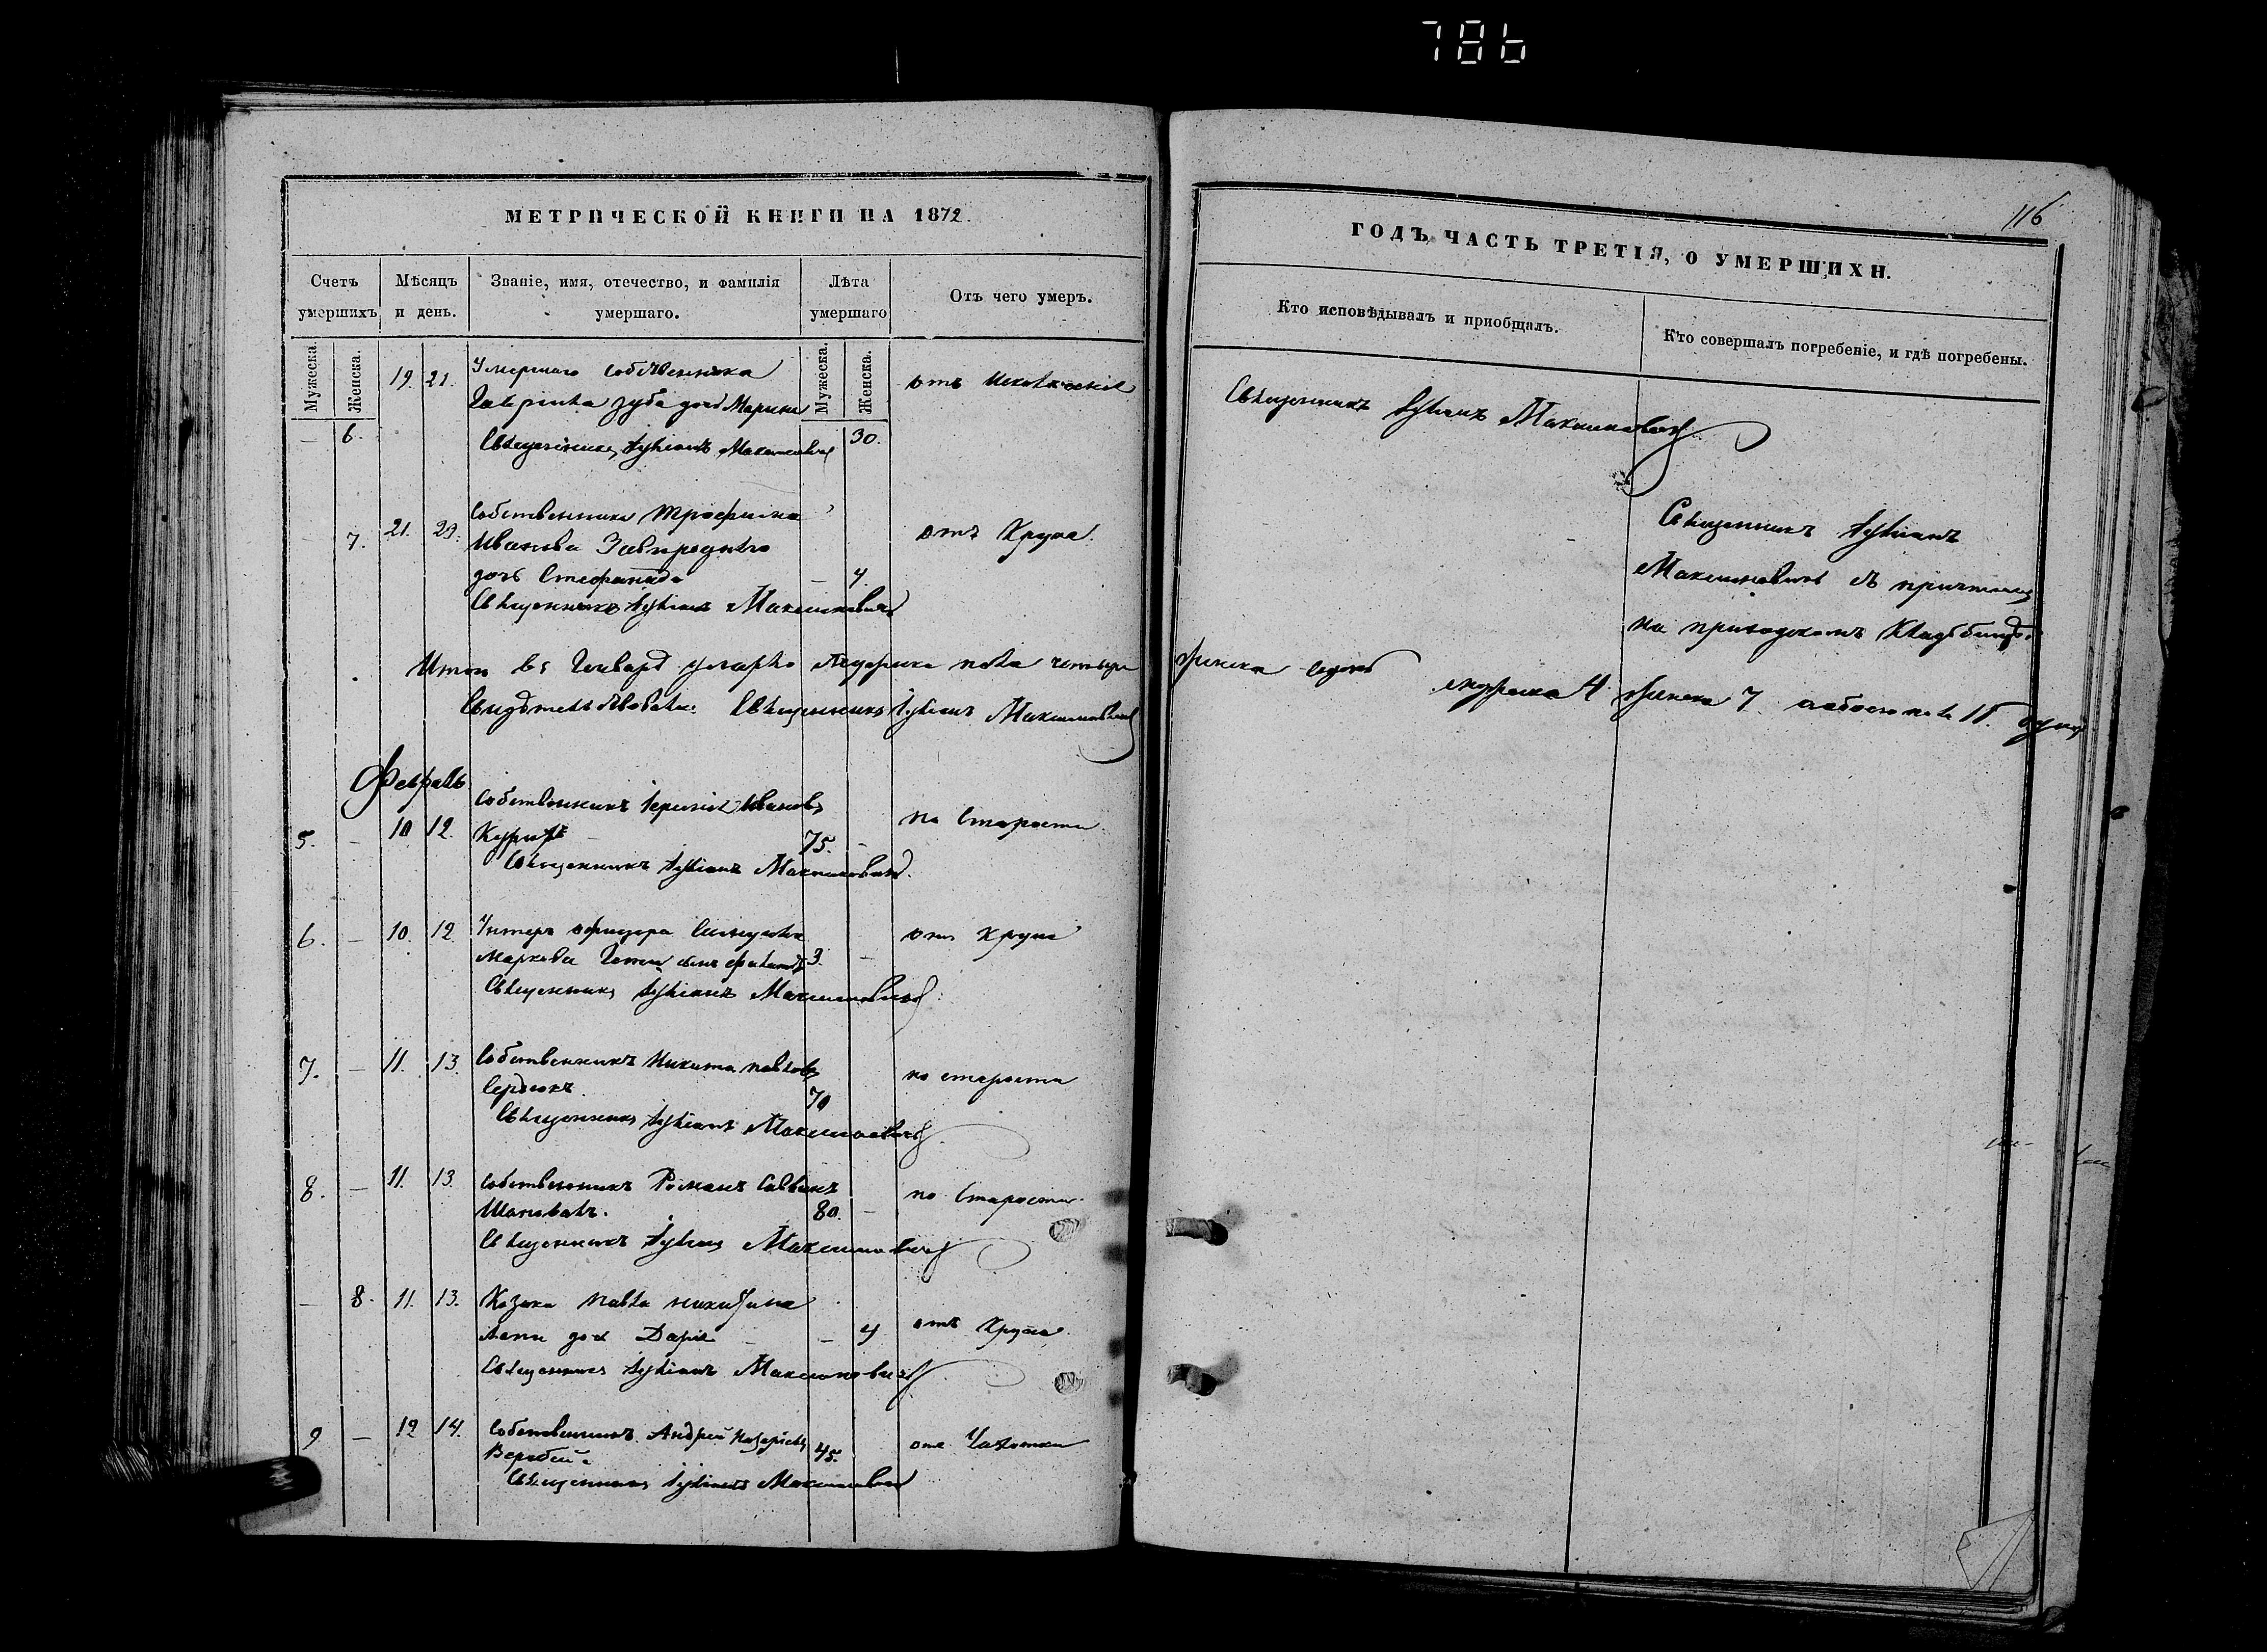 786
116
МЕТРИЧЕСКОЙ КНИГИ НА 1872.
Счетъ умершихъ
Мѣсяцъ и день.
Званіе, имя, отечество, и фамилія умершаго.
Лѣта умершаго
Отъ чего умеръ.
Мужеска.
Женска.
Мужеска.
Женска.
19. 21. Умершаго собственника
Гавріила Зуба дочь Марина
— 6. 30.
Священникъ Лукіанъ Максимовичъ
— 7. 21. 23. Собственника Трофима
Иванова
отъ Крупа.
дочь Стефанида — 4.
Священникъ Лукіанъ Максимовичъ
Итого въ Генварѣ умерло Мужеска пола четыри
Свидѣтельствовалъ: Священникъ Лукіанъ Максимовичъ
Февраль
5. — 10 12. Собственникъ Иванов
75. — по Старости.
Священникъ Лукіанъ Максимовичъ.
6. — 10. 12. Унтеръ офицера
Маркова сынъ 3. —
отъ крупа
Священникъ Лукіанъ Максимовичъ
7. — 11. 13. Собственникъ Никита Павловъ
Сердюкъ. 70
по старости
Священникъ Лукіанъ Максимовичъ
8. — 11. 13. Собственникъ Романъ Саввинъ
Шаповалъ. 80. —
по Старости.
Священникъ Лукіанъ Максимовичъ
— 8. 11. 13. Козака Павла Никитина
дочь Дарія — — 4
отъ Крупа.
Священникъ Лукіанъ Максимовичъ
9 — 12 14. Собственникъ Андрей Назаріевъ
Воробей. 45.
отъ Чахотки
Священникъ Лукіанъ Максимовичъ
ГОДЪ, ЧАСТЬ ТРЕТІЯ, О УМЕРШИХЪ.
Кто исповѣдывалъ и приобщалъ.
Кто совершалъ погребеніе, и гдѣ погребены.
Священникъ Лукіанъ Максимовичъ
Священникъ Лукіанъ
Максимовичъ съ причтомъ
на приходскомъ Кладбищѣ.
женска седмь
мужеска 4 женска 7 обоего пола 11. душъ